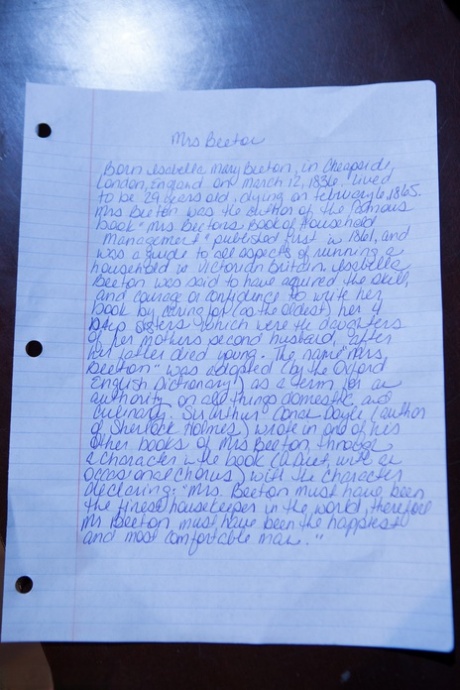 Mrs Beeton
Born Isabella Mary Beeton, in Cheapside,
London, England on March 12, 1836, lived
to be 29 years old, dying on february 6, 1865.
Mrs Beeton was the author of the famous
book "Mrs Beetons Book of Household
Management" published first in 1861, and
was a guide to all aspects of running a
household in Victorian Britain. Isabella
Beeton was said to have aquired the skill,
and courage or confidence to write her
book by caring for (as the oldest) her 4
step sisters which were the daughters
of her mothers second husband, after
her father died young. The name "Mrs
Beeton" was adopted (by the Oxford
English Dictionary) as a term for an
authority on all things domestic and
culinary. Sir Arthur Conan Doyle (author
of Sherlock Holmes) wrote in one of his
other books of Mrs Beeton, through
a character in the book (a Duet, with an
occasional chorus) with the character
declaring: "Mrs. Beeton must have been
the finest housekeeper in the world, therefore
Mr Beeton must have been the happiest
and most comfortable man."